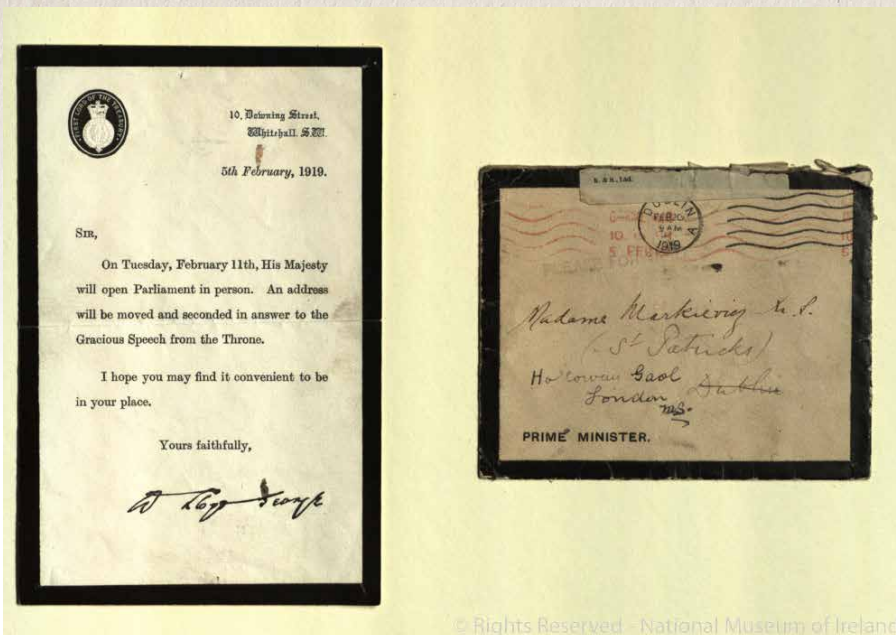 FIRST LORD OF THE TREASURY
10, Downing Street,
Whitehall. S.W.
5th February, 1919.
SIR,
On Tuesday, February 11th, His Majesty
will open Parliament in person. An address
will be moved and seconded in answer to the
Gracious Speech from the Throne.
I hope you may find it convenient to be
in your place.
Yours faithfully,
DUBLIN
FEB 20
9 AM
1919
A
5 FEB
Madame Markievicz
(St Patricks)
Holloway Gaol Dublin
London
PRIME MINISTER.
© Rights Reserved - National Museum of Ireland